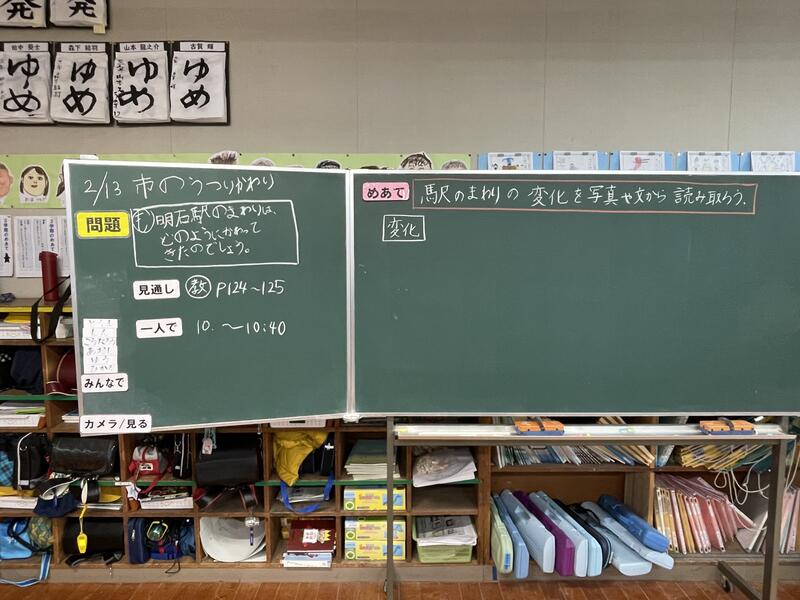 発
発
田中 葵士
森下 結羽
山本 龍之介
古賀 輝
ゆめ
ゆめ
ゆめ
ゆめ
2/13 市のうつりかわり
問題
も 明石駅のまわりは、
どのようにかわって
きたのでしょう。
見通し
教 P124〜125
一人で
10. 〜10:40
みんなで
カメラ/見る
めあて
駅のまわりの 変化を写真や文から 読み取ろう.
変化